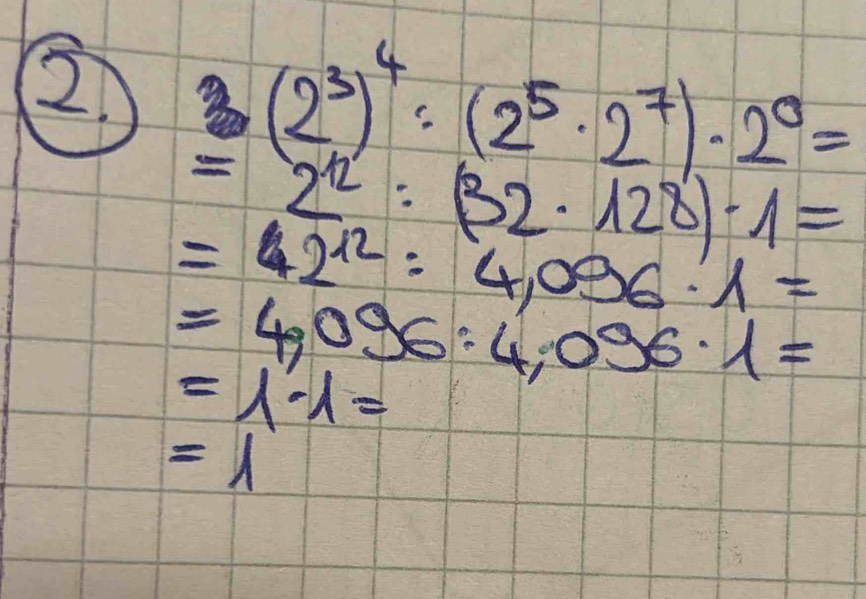 2. (2³)⁴ : (2⁵ · 2⁷) · 2⁰ =
= 2¹² : (32 · 128) · 1 =
= 2¹² : 4,096 · 1 =
= 4,096 : 4,096 · 1 =
= 1 · 1 =
= 1